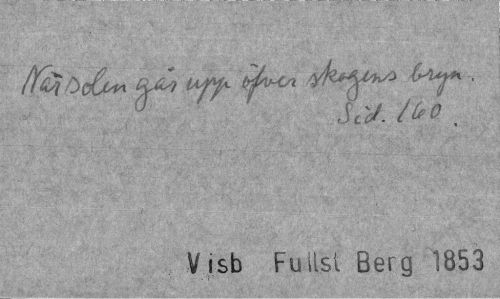 När solen går upp öfver skogens bryn.
Sid. 160.
Visb Fullst Berg 1853